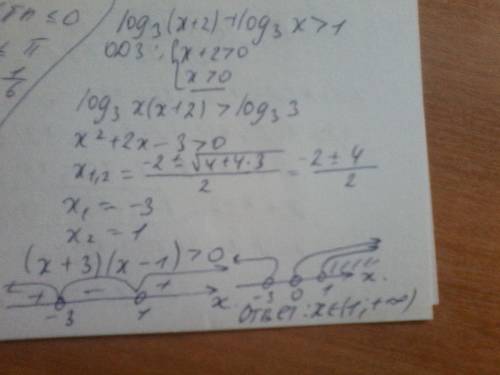 ≤ 0
≤ π
1/6
log₃(x+2)+log₃x>1
ОДЗ: {x+2>0
{x>0
log₃ x(x+2) > log₃ 3
x²+2x-3>0
x₁,₂ = (-2 ± √(4+4·3))/2 = (-2 ± 4)/2
x₁ = -3
x₂ = 1
(x+3)(x-1)>0
+ - + x
-3 1
-3 0 1 x.
Ответ: x∈(1; +∞)